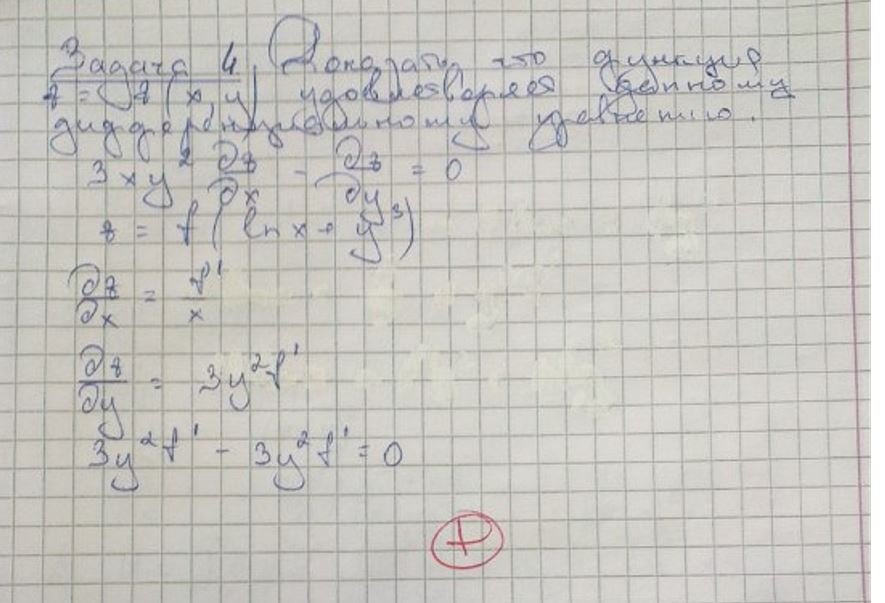 Задача 4. Доказать, что функция
z = z(x,y) удовлетворяет данному
дифференциальному уравнению.
3xy² ∂z/∂x - ∂z/∂y = 0
z = f(ln x + y³)
∂z/∂x = f'/x
∂z/∂y = 3y²f'
3y²f' - 3y²f' = 0
+